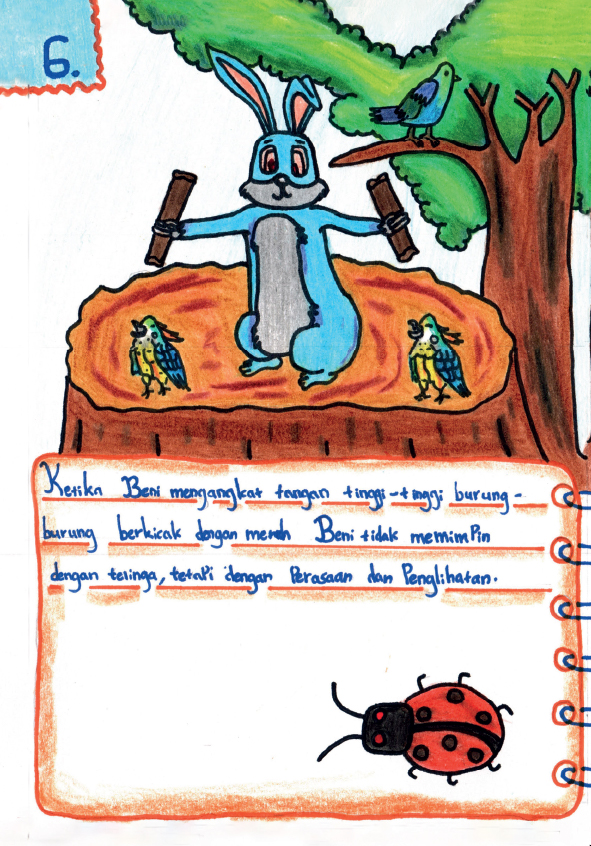 6.
Ketika Beni mengangkat tangan tinggi-tinggi burung-
burung berkicak dengan merdh Beni tidak memimpin
dengan telinga, tetapi dengan Perasaan dan Penglihatan.